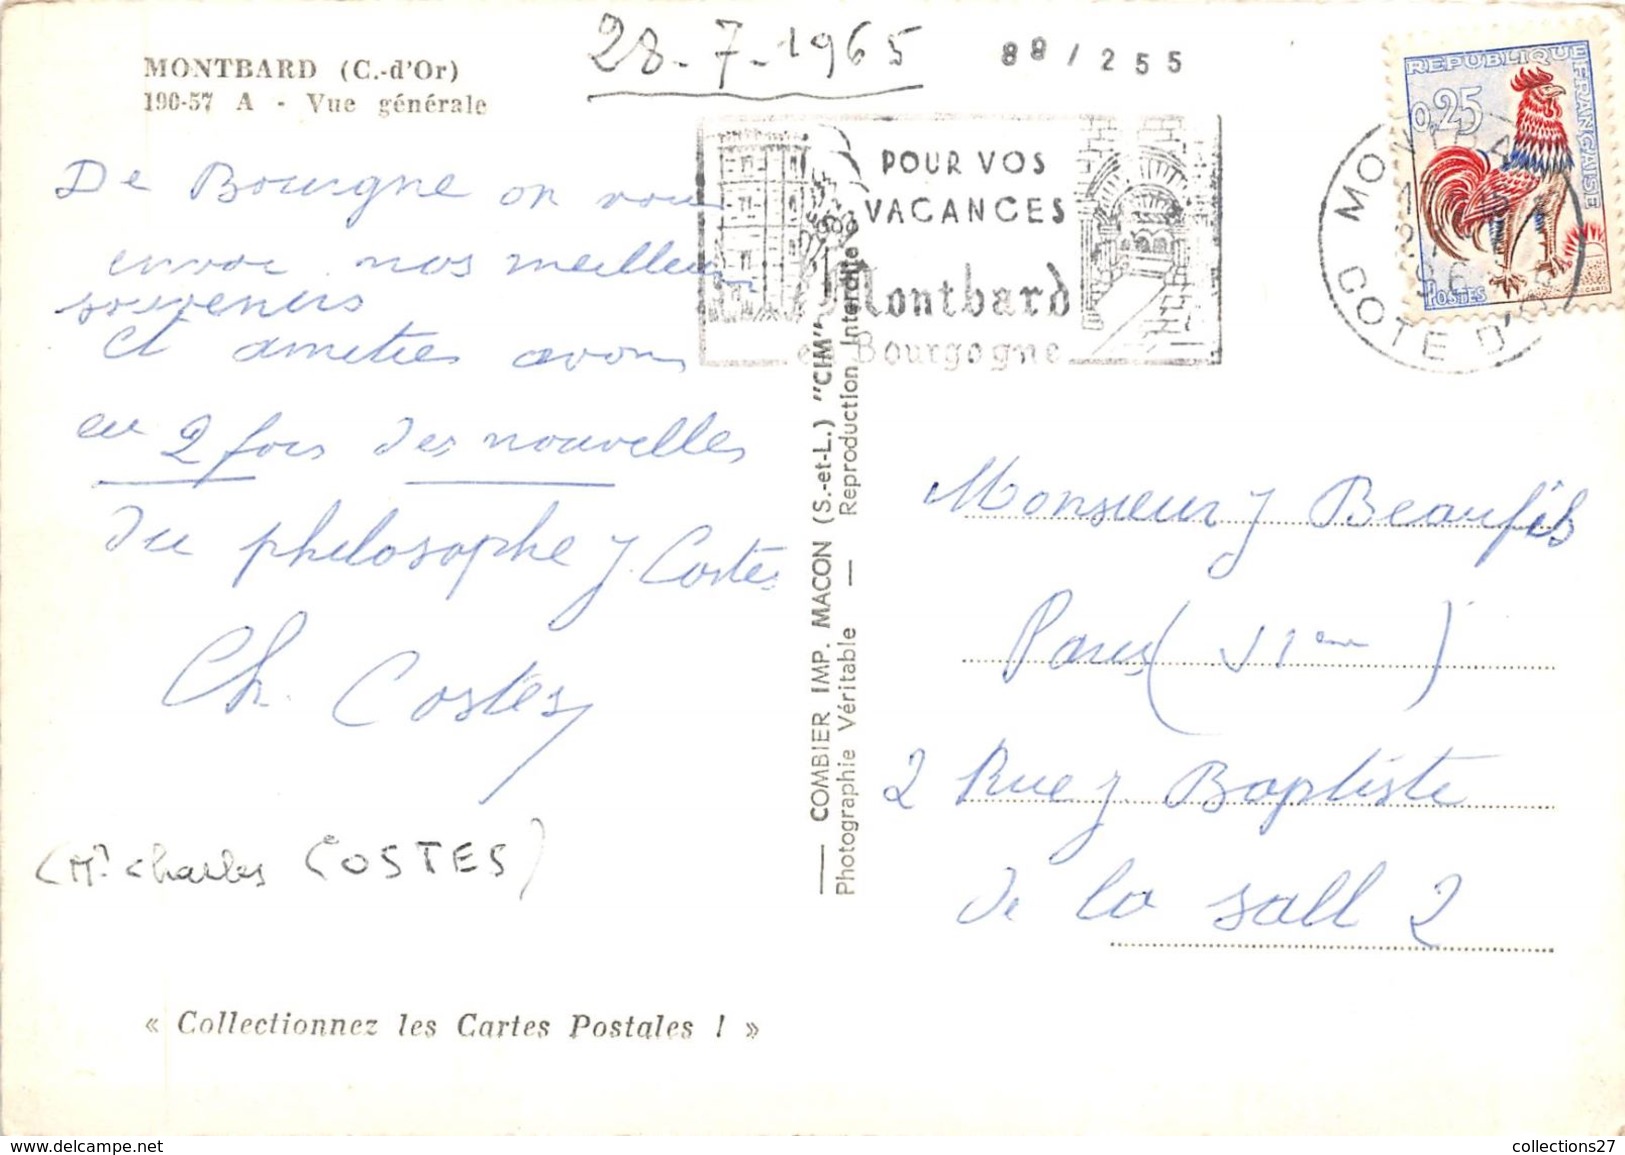 28-7-1965
88/255
MONTBARD (C.-d'Or)
190-57 A - Vue générale
POUR VOS
VACANCES
Montbard
en Bourgogne
REPUBLIQUE FRANÇAISE
0,25
POSTES
MONTBARD
COTE D'OR
De Bourgne on vous
envoie nos meilleurs
souvenirs
et amitiés avons
eu 2 fois des nouvelles
du philosophe J. Costes
Ch. Costes
(Mr Charles COSTES)
« Collectionnez les Cartes Postales ! »
— COMBIER IMP. MACON (S.-et-L.) "CIM" —
Photographie Véritable — Reproduction Interdite
Monsieur J Beaufils
Paris (VIème)
2 Rue J. Baptiste
de la Sall 2
www.delcampe.net
collections27